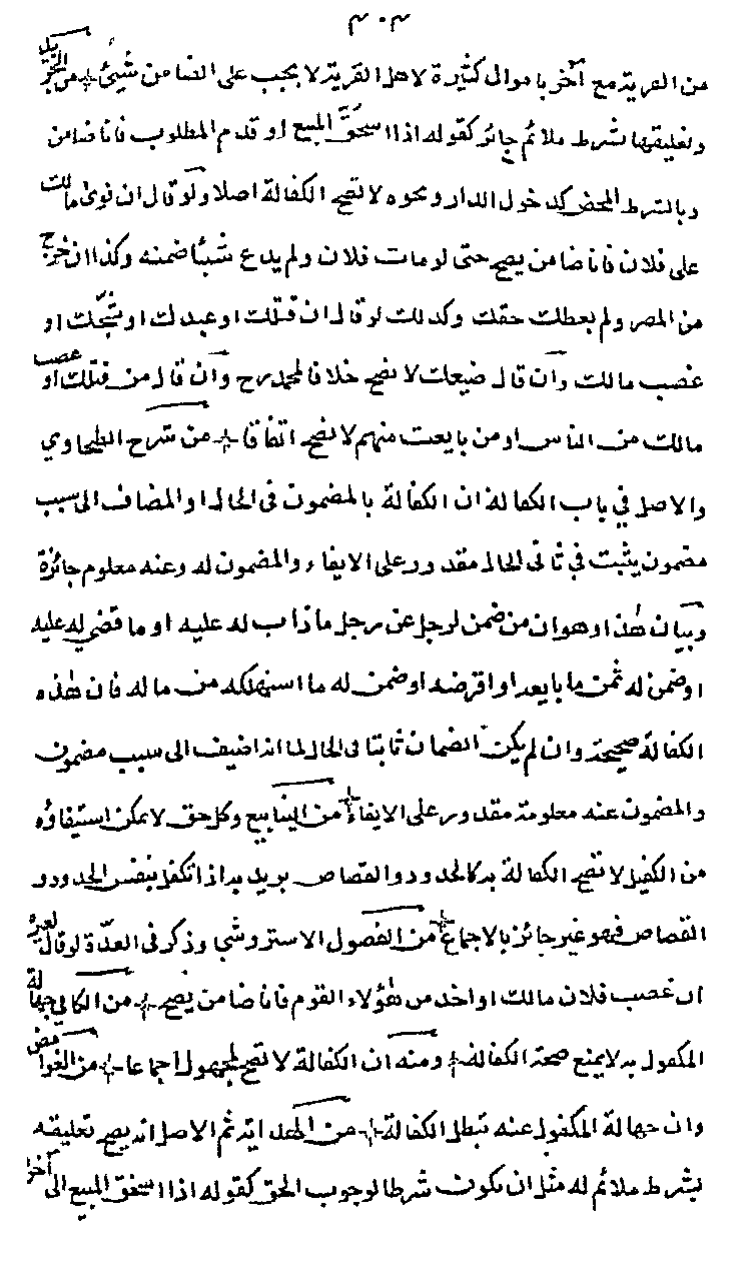 ٣٠٣
من القرية مع آخر باموال كثيرة لاهل القرية لا يجب على الضامن شيئ من التجريد
وتعليقها بشرط ملائم جائز كقوله اذا استحق المبيع او قدم المطلوب فانا ضامن
وبالشرط المحض كدخول الدار ونحوه لا تصح الكفالة اصلا ولو قال ان توى مالك
على فلان فانا ضامن يصح حتى لو مات فلان ولم يدع شيئا ضمنه وكذا ان خرج
من المصر ولم يعطك حقك وكذلك لو قال ان قتلك او عبدك او شجك او
غصب مالك وان قال ضيعك لا تصح خلافا لمحمد رح وان قال من قتلك او غصب
مالك من الناس او من بايعت منهم لا تصح اتفاقا من شرح الطحاوي
والاصل في باب الكفالة ان الكفالة بالمضمون فى الحال او المضاف الى سبب
مضمون يثبت في ثانى الحال مقدور على الايفاء والمضمون له وعنه معلوم جائزة
وبيان هذا وهو ان من ضمن لرجل عن رجل ما ذاب له عليه او ما قضي له عليه
او ضمن له ثمن ما بايعه او اقرضه او ضمن له ما استهلكه من ماله فان هذه
الكفالة صحيحة وان لم يكن الضمان ثابتا فى الحال لما انه اضيف الى سبب مضمون
والمضمون عنه معلومة مقدور على الايفاء من الينابيع وكل حق لا يمكن استيفاؤه
من الكفيل لا تصح الكفالة به كالحدود والقصاص يريد به اذا تكفل بنفس الحدود و
القصاص فهو غير جائز بالاجماع من الفصول الاستروشنى وذكر فى العدّة لو قال لغيره
ان غصب فلان مالك او احد من هؤلاء القوم فانا ضامن يصح من الكافي جهالة
المكفول به لا يمنع صحة الكفالة ومنه ان الكفالة لا تصح لمجهول اجماعا من الغوامض
وان جهالة المكفول عنه تبطل الكفالة من الهداية ثم الاصل انه يصح تعليقه
بشرط ملائم له مثل ان يكون شرطا لوجوب الحق كقوله اذا استحق المبيع الى آخر